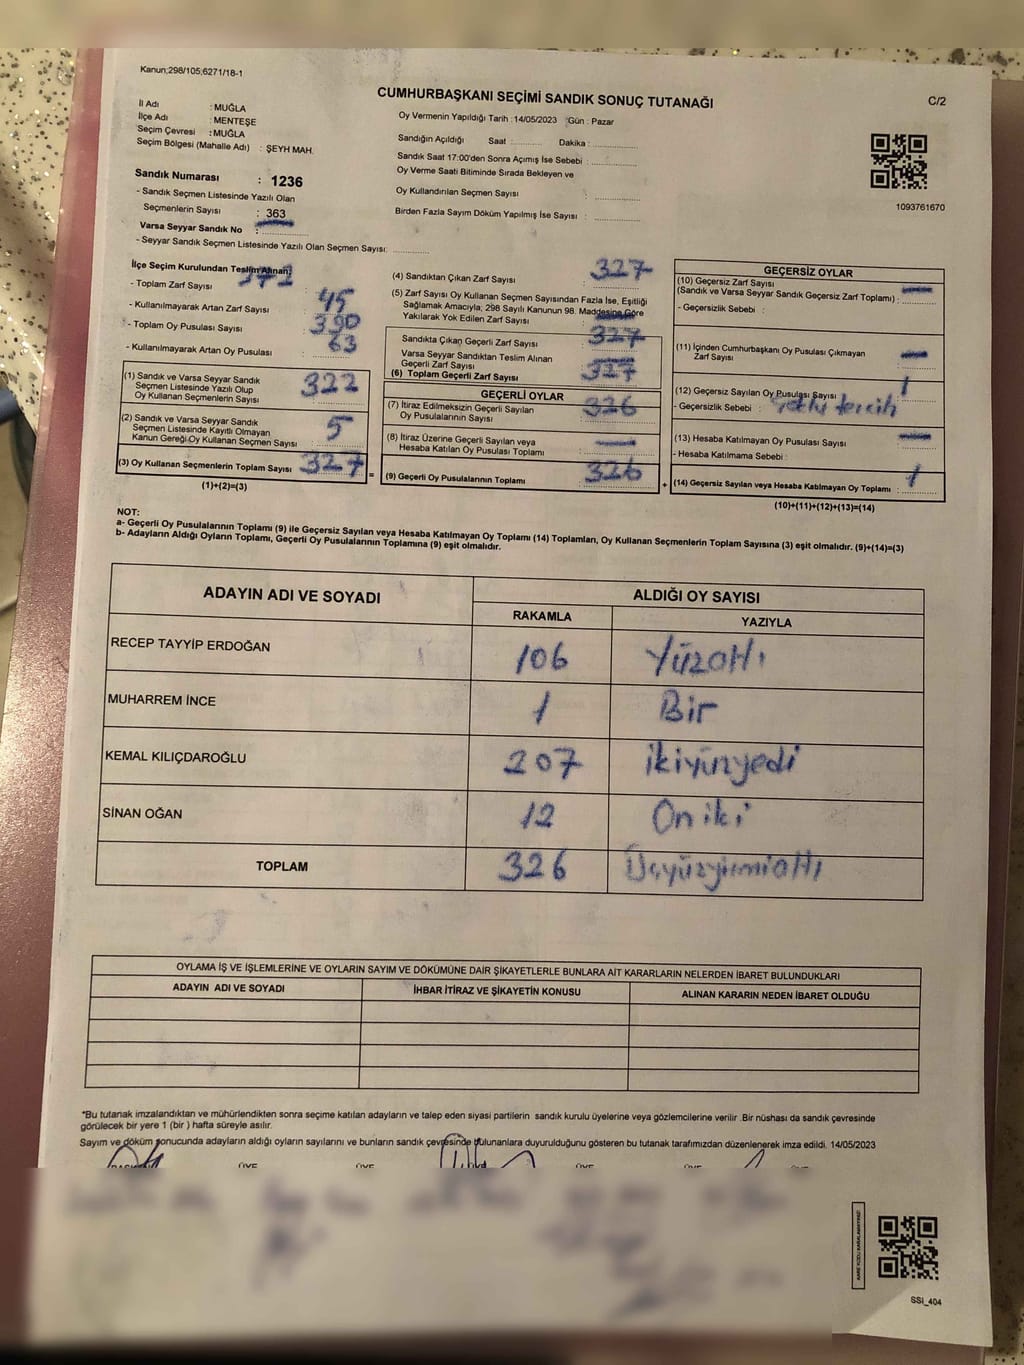 Kanun;298/105;6271/18-1
CUMHURBAŞKANI SEÇİMİ SANDIK SONUÇ TUTANAĞI
C/2
İl Adı : MUĞLA
İlçe Adı : MENTEŞE
Seçim Çevresi : MUĞLA
Seçim Bölgesi (Mahalle Adı) : ŞEYH MAH.
Oy Vermenin Yapıldığı Tarih :14/05/2023 Gün : Pazar
Sandığın Açıldığı Saat :............ Dakika :............
Sandık Saat 17:00'den Sonra Açımış İse Sebebi :............
Oy Verme Saati Bitiminde Sırada Bekleyen ve
Oy Kullandırılan Seçmen Sayısı :............
Birden Fazla Sayım Döküm Yapılmış İse Sayısı :............
1093761670
Sandık Numarası : 1236
- Sandık Seçmen Listesinde Yazılı Olan
Seçmenlerin Sayısı : 363
Varsa Seyyar Sandık No :
- Seyyar Sandık Seçmen Listesinde Yazılı Olan Seçmen Sayısı:............
İlçe Seçim Kurulundan Teslim Alınan;
- Toplam Zarf Sayısı :
- Kullanılmayarak Artan Zarf Sayısı : 45
- Toplam Oy Pusulası Sayısı : 390
- Kullanılmayarak Artan Oy Pusulası : 63
(1) Sandık ve Varsa Seyyar Sandık
Seçmen Listesinde Yazılı Olup
Oy Kullanan Seçmenlerin Sayısı : 322
(2) Sandık ve Varsa Seyyar Sandık
Seçmen Listesinde Kayıtlı Olmayan
Kanun Gereği Oy Kullanan Seçmen Sayısı : 5
(3) Oy Kullanan Seçmenlerin Toplam Sayısı : 327 =
(1)+(2)=(3)
(4) Sandıktan Çıkan Zarf Sayısı : 327
(5) Zarf Sayısı Oy Kullanan Seçmen Sayısından Fazla İse, Eşitliği
Sağlamak Amacıyla; 298 Sayılı Kanunun 98. Maddesine Göre
Yakılarak Yok Edilen Zarf Sayısı :
Sandıkta Çıkan Geçerli Zarf Sayısı : 327
Varsa Seyyar Sandıktan Teslim Alınan
Geçerli Zarf Sayısı :
(6) Toplam Geçerli Zarf Sayısı : 327
GEÇERLİ OYLAR
(7) İtiraz Edilmeksizin Geçerli Sayılan
Oy Pusulalarının Sayısı : 326
(8) İtiraz Üzerine Geçerli Sayılan veya
Hesaba Katılan Oy Pusulası Toplamı :
(9) Geçerli Oy Pusulalarının Toplamı : 326 +
GEÇERSİZ OYLAR
(10) Geçersiz Zarf Sayısı
(Sandık ve Varsa Seyyar Sandık Geçersiz Zarf Toplamı) :
- Geçersizlik Sebebi :
(11) İçinden Cumhurbaşkanı Oy Pusulası Çıkmayan
Zarf Sayısı :
(12) Geçersiz Sayılan Oy Pusulası Sayısı : 1
- Geçersizlik Sebebi : tercih
(13) Hesaba Katılmayan Oy Pusulası Sayısı :
- Hesaba Katılmama Sebebi :
(14) Geçersiz Sayılan veya Hesaba Katılmayan Oy Toplamı : 1
(10)+(11)+(12)+(13)=(14)
NOT:
a- Geçerli Oy Pusulalarının Toplamı (9) ile Geçersiz Sayılan veya Hesaba Katılmayan Oy Toplamı (14) Toplamları, Oy Kullanan Seçmenlerin Toplam Sayısına (3) eşit olmalıdır. (9)+(14)=(3)
b- Adayların Aldığı Oyların Toplamı, Geçerli Oy Pusulalarının Toplamına (9) eşit olmalıdır.
ADAYIN ADI VE SOYADI ALDIĞI OY SAYISI
RAKAMLA YAZIYLA
RECEP TAYYİP ERDOĞAN 106 Yüzaltı
MUHARREM İNCE 1 Bir
KEMAL KILIÇDAROĞLU 207 ikiyüzyedi
SİNAN OĞAN 12 Oniki
TOPLAM 326 Üçyüzyirmialtı
OYLAMA İŞ VE İŞLEMLERİNE VE OYLARIN SAYIM VE DÖKÜMÜNE DAİR ŞİKAYETLERLE BUNLARA AİT KARARLARIN NELERDEN İBARET BULUNDUKLARI
ADAYIN ADI VE SOYADI İHBAR İTİRAZ VE ŞİKAYETİN KONUSU ALINAN KARARIN NEDEN İBARET OLDUĞU
*Bu tutanak imzalandıktan ve mühürlendikten sonra seçime katılan adayların ve talep eden siyasi partilerin sandık kurulu üyelerine veya gözlemcilerine verilir .Bir nüshası da sandık çevresinde
görülecek bir yere 1 (bir ) hafta süreyle asılır.
Sayım ve döküm sonucunda adayların aldığı oyların sayılarını ve bunların sandık çevresinde bulunanlara duyurulduğunu gösteren bu tutanak tarafımızdan düzenlenerek imza edildi. 14/05/2023
SSİ_404